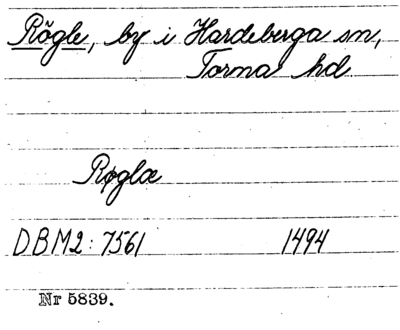 Rögle, by i Hardeberga sn,
Torna hd
Røglæ
DBM2: 7561 1494
Nr 5839.